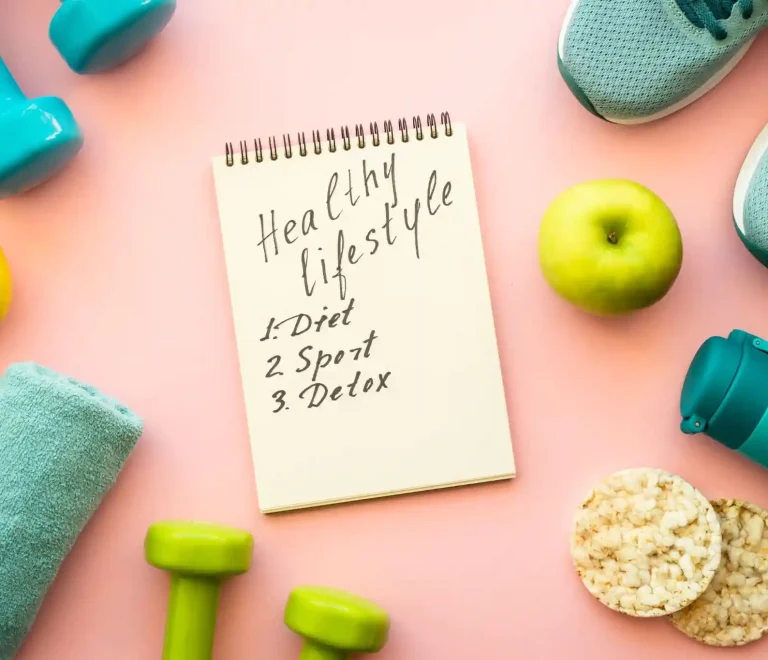 Healthy
lifestyle
1. Diet
2 Sport
3. Detox